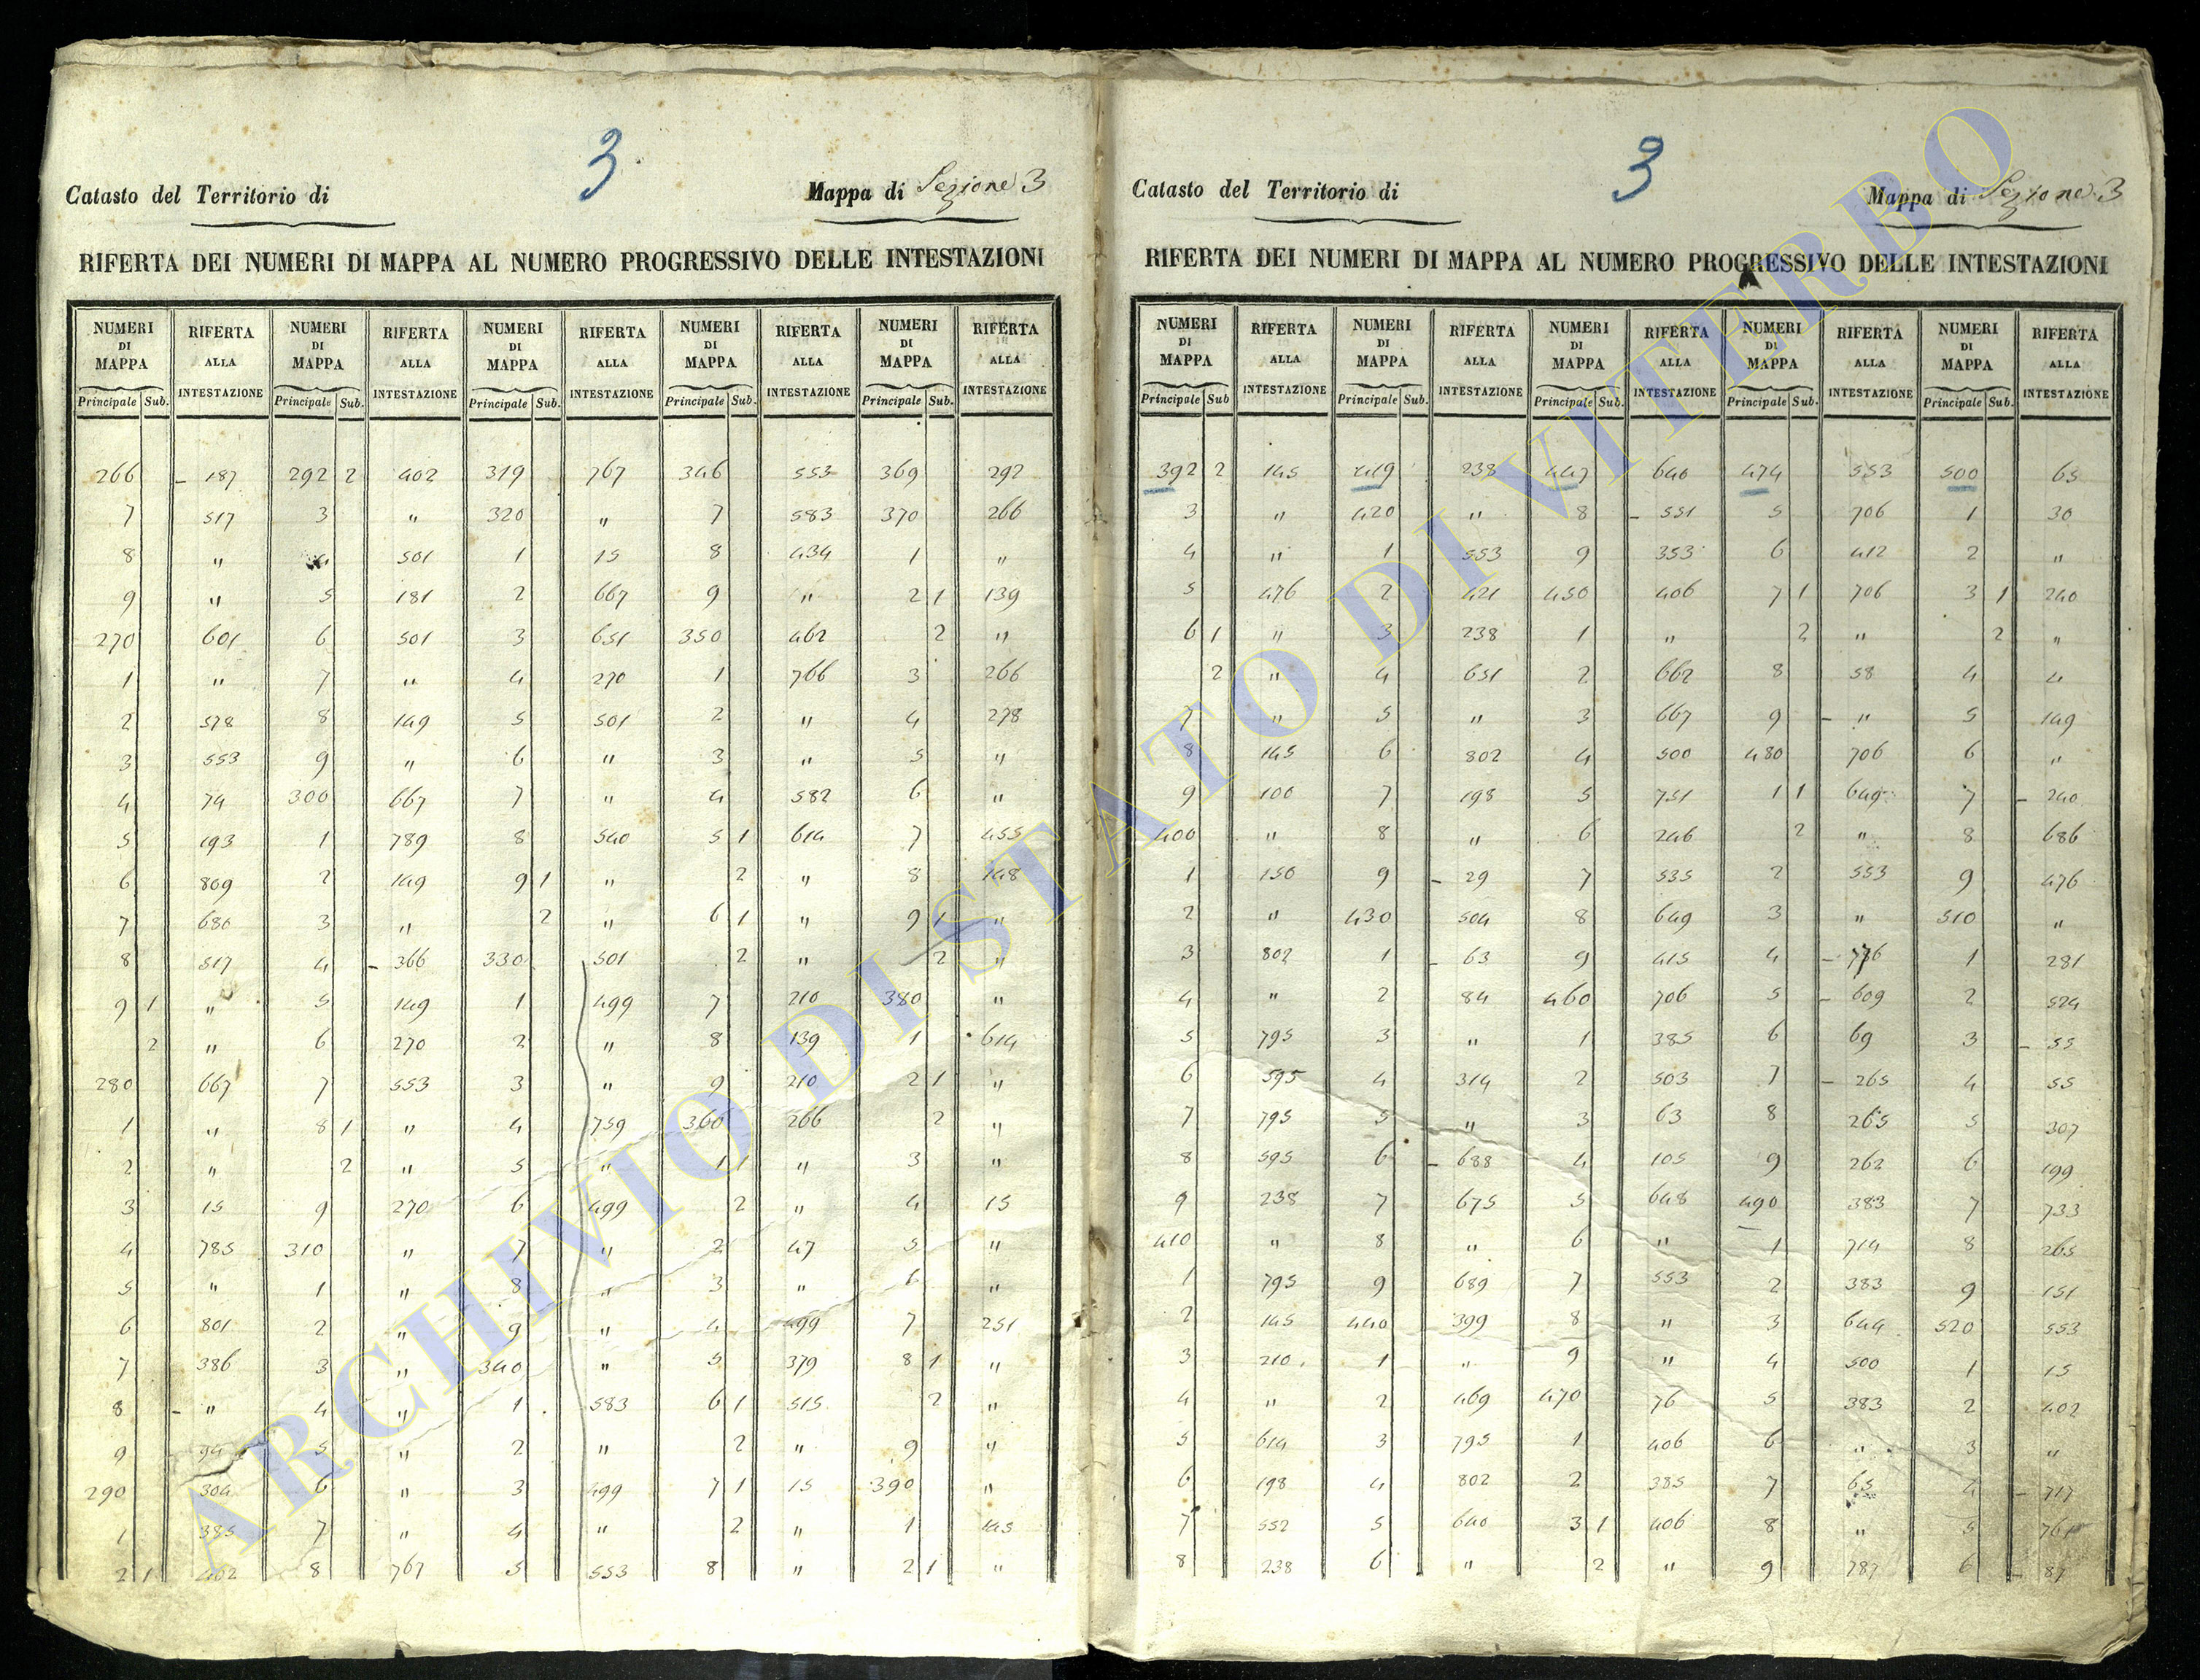 3
Catasto del Territorio di
Mappa di Sezione 3
RIFERTA DEI NUMERI DI MAPPA AL NUMERO PROGRESSIVO DELLE INTESTAZIONI
NUMERI DI MAPPA RIFERTA ALLA INTESTAZIONE NUMERI DI MAPPA RIFERTA ALLA INTESTAZIONE NUMERI DI MAPPA RIFERTA ALLA INTESTAZIONE NUMERI DI MAPPA RIFERTA ALLA INTESTAZIONE NUMERI DI MAPPA RIFERTA ALLA INTESTAZIONE
Principale Sub. Principale Sub. Principale Sub. Principale Sub. Principale Sub.
266 – 187 292 2 402 319 767 346 553 369 292
7 517 3 " 320 " 7 583 370 266
8 " 4 501 1 15 8 434 1 "
9 " 5 181 2 667 9 " 2 1 139
270 601 6 501 3 651 350 462 2 "
1 " 7 " 4 270 1 766 3 266
2 578 8 149 5 501 2 " 4 278
3 553 9 " 6 " 3 " 5 "
4 74 300 667 7 " 4 582 6 "
5 193 1 789 8 540 5 1 614 7 455
6 809 2 149 9 1 " 2 " 8 148
7 680 3 " 2 " 6 1 " 9 1 "
8 517 4 – 366 330 501 2 " 2 "
9 1 " 5 149 1 499 7 210 380 "
2 " 6 270 2 " 8 139 1 614
280 667 7 553 3 " 9 210 2 1 "
1 " 8 1 " 4 759 360 266 2 "
2 " 2 " 5 " 1 1 " 3 "
3 15 9 270 6 499 2 " 4 15
4 785 310 " 7 " 2 47 5 "
5 " 1 " 8 " 3 " 6 "
6 801 2 " 9 " 4 499 7 251
7 386 3 " 340 " 5 379 8 1 "
8 – " 4 " 1 583 6 1 515 2 "
9 94 5 " 2 " 2 " 9 "
290 304 6 " 3 499 7 1 15 390 "
1 385 7 " 4 " 2 " 1 145
2 1 402 8 767 5 553 8 " 2 1 "
3
Catasto del Territorio di
Mappa di Sezione 3
RIFERTA DEI NUMERI DI MAPPA AL NUMERO PROGRESSIVO DELLE INTESTAZIONI
NUMERI DI MAPPA RIFERTA ALLA INTESTAZIONE NUMERI DI MAPPA RIFERTA ALLA INTESTAZIONE NUMERI DI MAPPA RIFERTA ALLA INTESTAZIONE NUMERI DI MAPPA RIFERTA ALLA INTESTAZIONE NUMERI DI MAPPA RIFERTA ALLA INTESTAZIONE
Principale Sub Principale Sub. Principale Sub. Principale Sub. Principale Sub.
392 2 145 419 238 447 640 474 553 500 65
3 " 420 " 8 – 551 5 706 1 30
4 " 1 553 9 353 6 412 2 "
5 476 2 421 450 406 7 1 706 3 1 240
6 1 " 3 238 1 " 2 " 2 "
2 " 4 651 2 662 8 58 4 "
7 " 5 " 3 667 9 – " 5 149
8 145 6 802 4 500 480 706 6 "
9 100 7 198 5 751 1 1 649 7 – 240
400 " 8 " 6 246 2 " 8 686
1 150 9 – 29 7 535 2 553 9 476
2 " 430 504 8 649 3 " 510 "
3 802 1 – 63 9 415 4 – 776 1 281
4 " 2 84 460 706 5 – 609 2 524
5 795 3 " 1 385 6 69 3 – 55
6 595 4 314 2 503 7 – 265 4 55
7 795 5 " 3 63 8 265 5 307
8 595 6 – 688 4 105 9 262 6 199
9 238 7 675 5 648 490 383 7 733
410 " 8 " 6 " 1 714 8 265
1 795 9 689 7 553 2 383 9 151
2 145 440 399 8 " 3 644 520 553
3 210 1 " 9 " 4 500 1 15
4 " 2 469 470 76 5 383 2 402
5 614 3 795 1 406 6 " 3 "
6 198 4 802 2 385 7 65 4 – 717
7 552 5 640 3 1 406 8 " 5 761
8 238 6 " 2 " 9 787 6 – 87
ARCHIVIO DI STATO DI VITERBO